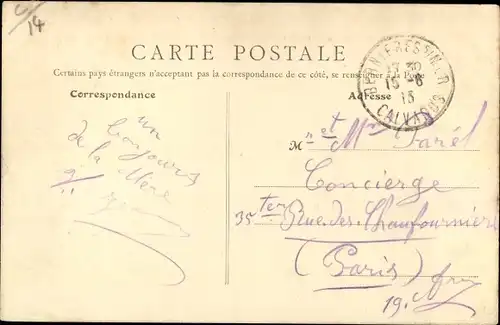 14
CARTE POSTALE
Certains pays étrangers n'acceptant pas la correspondance de ce côté, se renseigner à la Poste
Correspondance
Adresse
BERNIERES S/MER
17 30
15 -8
13
CALVADOS
un
bonjour
de la Mère
M
r et Mme Farél
Concierge
35 ter Rue des Chaufourniers
(Paris)
19e